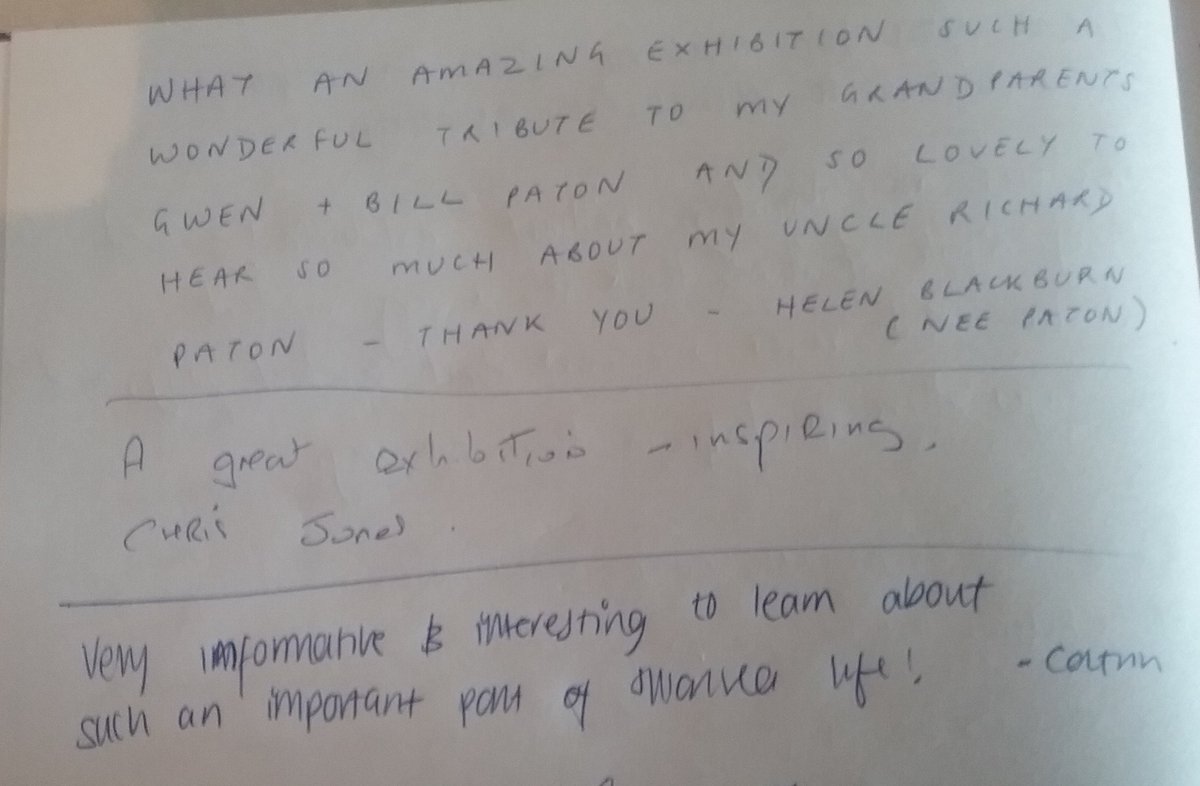 WHAT AN AMAZING EXHIBITION SUCH A
WONDERFUL TRIBUTE TO MY GRANDPARENTS
GWEN + BILL PATON AND SO LOVELY TO
HEAR SO MUCH ABOUT MY UNCLE RICHARD
PATON - THANK YOU - HELEN BLACKBURN
(NEE PATON)
A great exhibition - inspiring.
Chris Jones.
Very informative & interesting to learn about
such an important part of Swansea life!